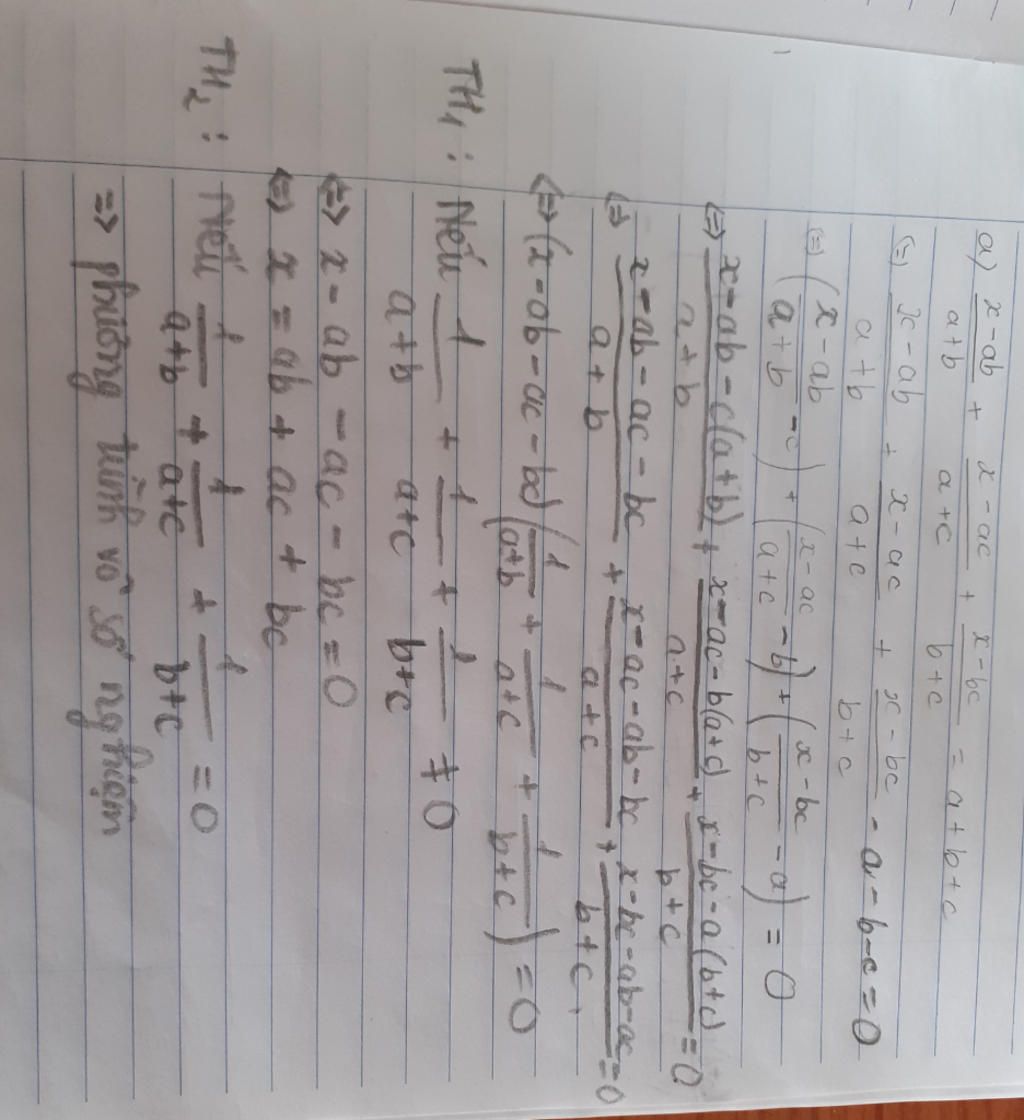 a) (x-ab)/(a+b) + (x-ac)/(a+c) + (x-bc)/(b+c) = a+b+c
(=) (x-ab)/(a+b) + (x-ac)/(a+c) + (x-bc)/(b+c) - a-b-c=0
(=) ((x-ab)/(a+b) - c) + ((x-ac)/(a+c) - b) + ((x-bc)/(b+c) - a) = 0
(=) (x-ab-c(a+b))/(a+b) + (x-ac-b(a+c))/(a+c) + (x-bc-a(b+c))/(b+c) = 0
(=) (x-ab-ac-bc)/(a+b) + (x-ac-ab-bc)/(a+c) + (x-bc-ab-ac)/(b+c) = 0
(=) (x-ab-ac-bc)(1/(a+b) + 1/(a+c) + 1/(b+c)) = 0
TH1: Nếu 1/(a+b) + 1/(a+c) + 1/(b+c) ≠ 0
(=) x-ab-ac-bc=0
(=) x = ab + ac + bc
TH2: Nếu 1/(a+b) + 1/(a+c) + 1/(b+c) = 0
=> phương trình vô số nghiệm